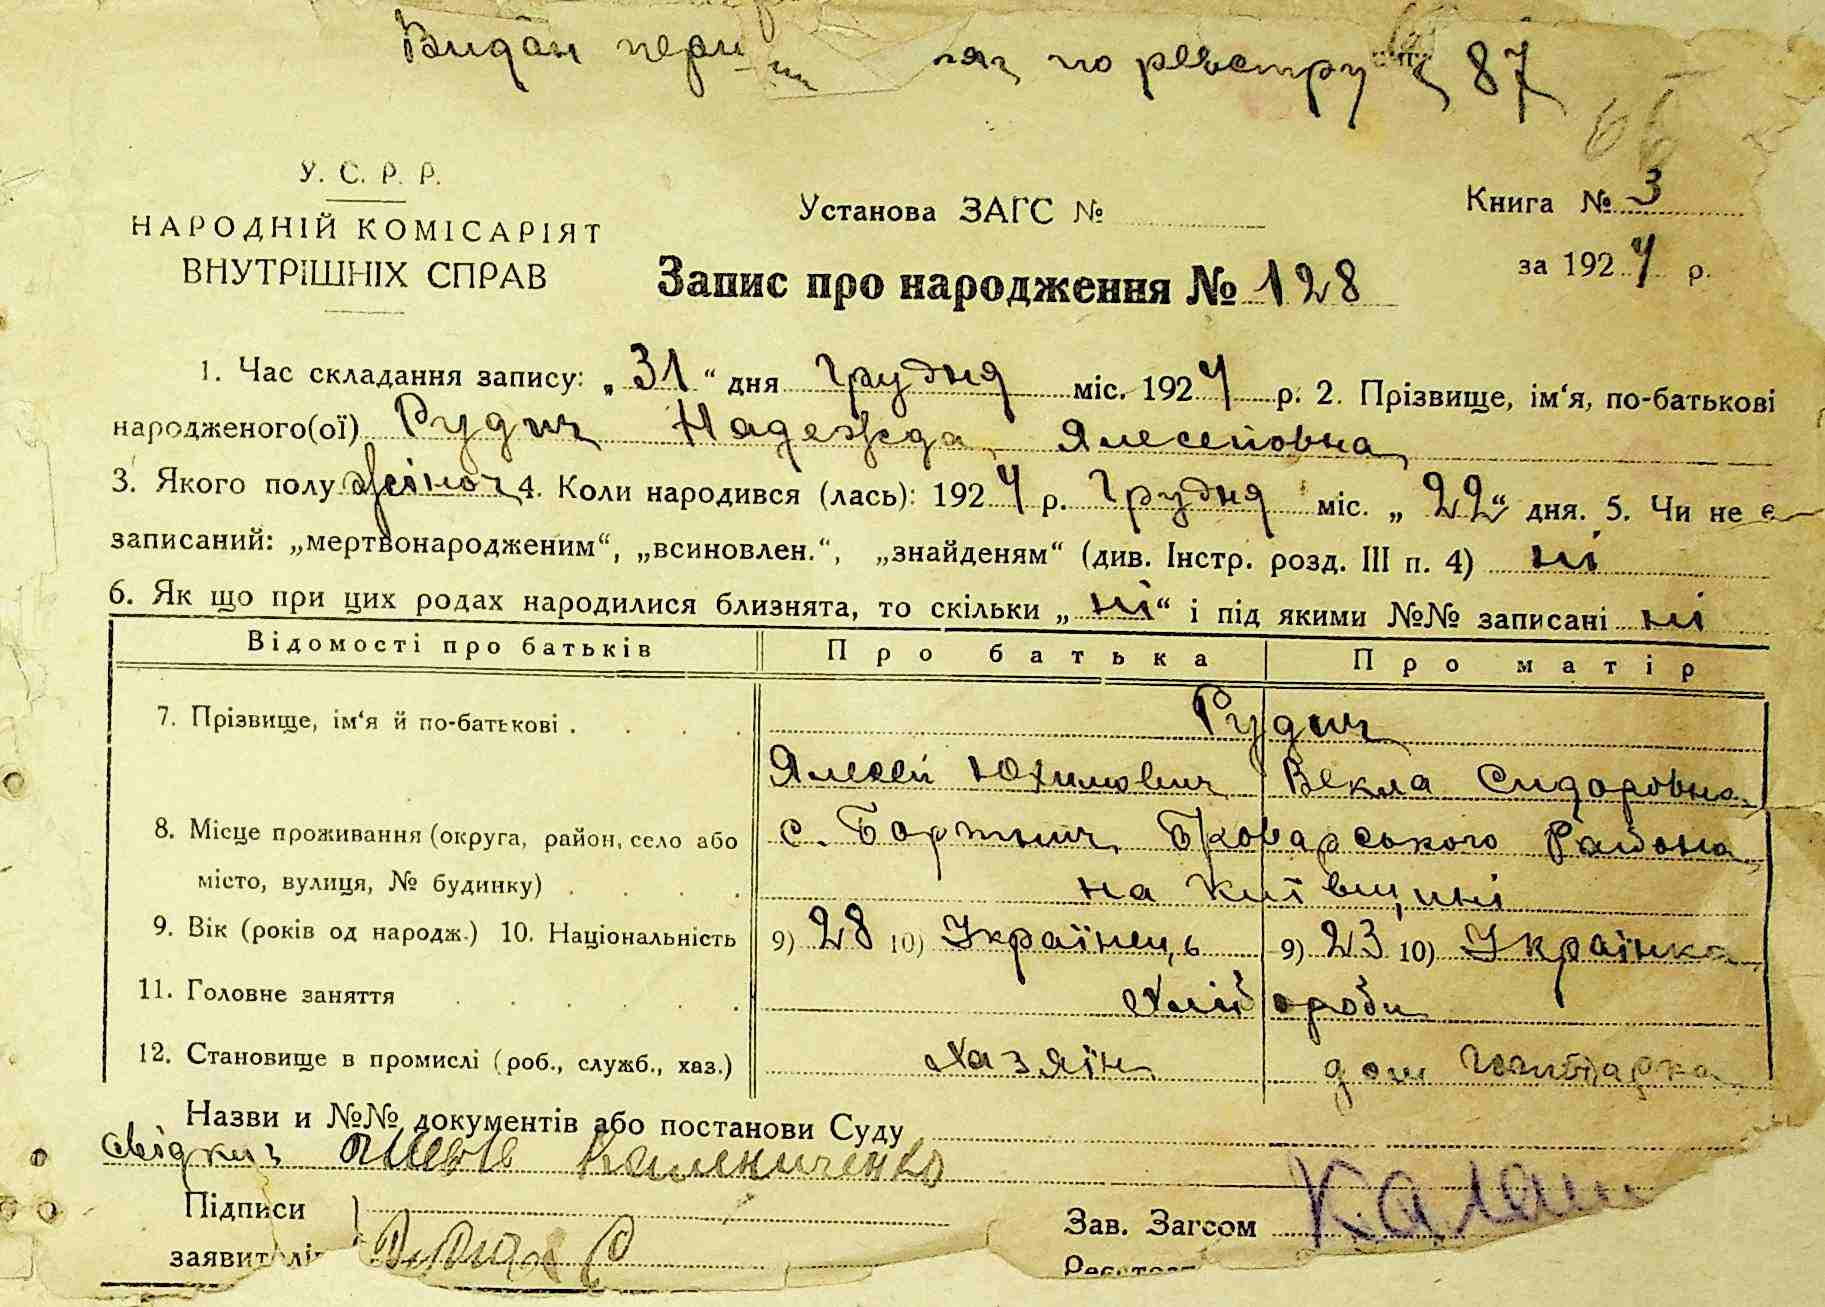 Видан пері по реєстру 87
У. С. Р. Р.
НАРОДНІЙ КОМІСАРІЯТ
ВНУТРІШНІХ СПРАВ
Установа ЗАГС №
Запис про народження № 128
Книга № 3
за 1924 р.
1. Час складання запису: „ 31 “ дня Грудня міс. 1924 р. 2. Прізвище, ім‘я, по-батькові
народженого(ої) Рудич Надежда Алексейовна
3. Якого полу жіноч 4. Коли народився (лась): 1924 р. Грудня міс. „ 22 “ дня. 5. Чи не є
записаний: „мертвонародженим“, „всиновлен.“, „знайденям“ (див. Інстр. розд. III п. 4) ні
6. Як що при цих родах народилися близнята, то скільки „ ні “ і під якими №№ записані ні
Відомості про батьків Про батька Про матір
7. Прізвище, ім‘я й по-батькові . . . . Рудич
Алексей Юхимович Векла Сидоровна
8. Місце проживання (округа, район, село або с. Бортнич Броварського Района
місто, вулиця, № будинку) . . . . на Київщині
9. Вік (років од народж.) 10. Національність 9) 28 10) Українець 9) 23 10) Українка
11. Головне заняття . . . . . Хліб ороби
12. Становище в промислі (роб., служб., хаз.) Хазяїн дом Господарка
Назви и №№ документів або постанови Суду
свідкиз Калениченко
Підписи
заявителів
Зав. Загсом Калаш